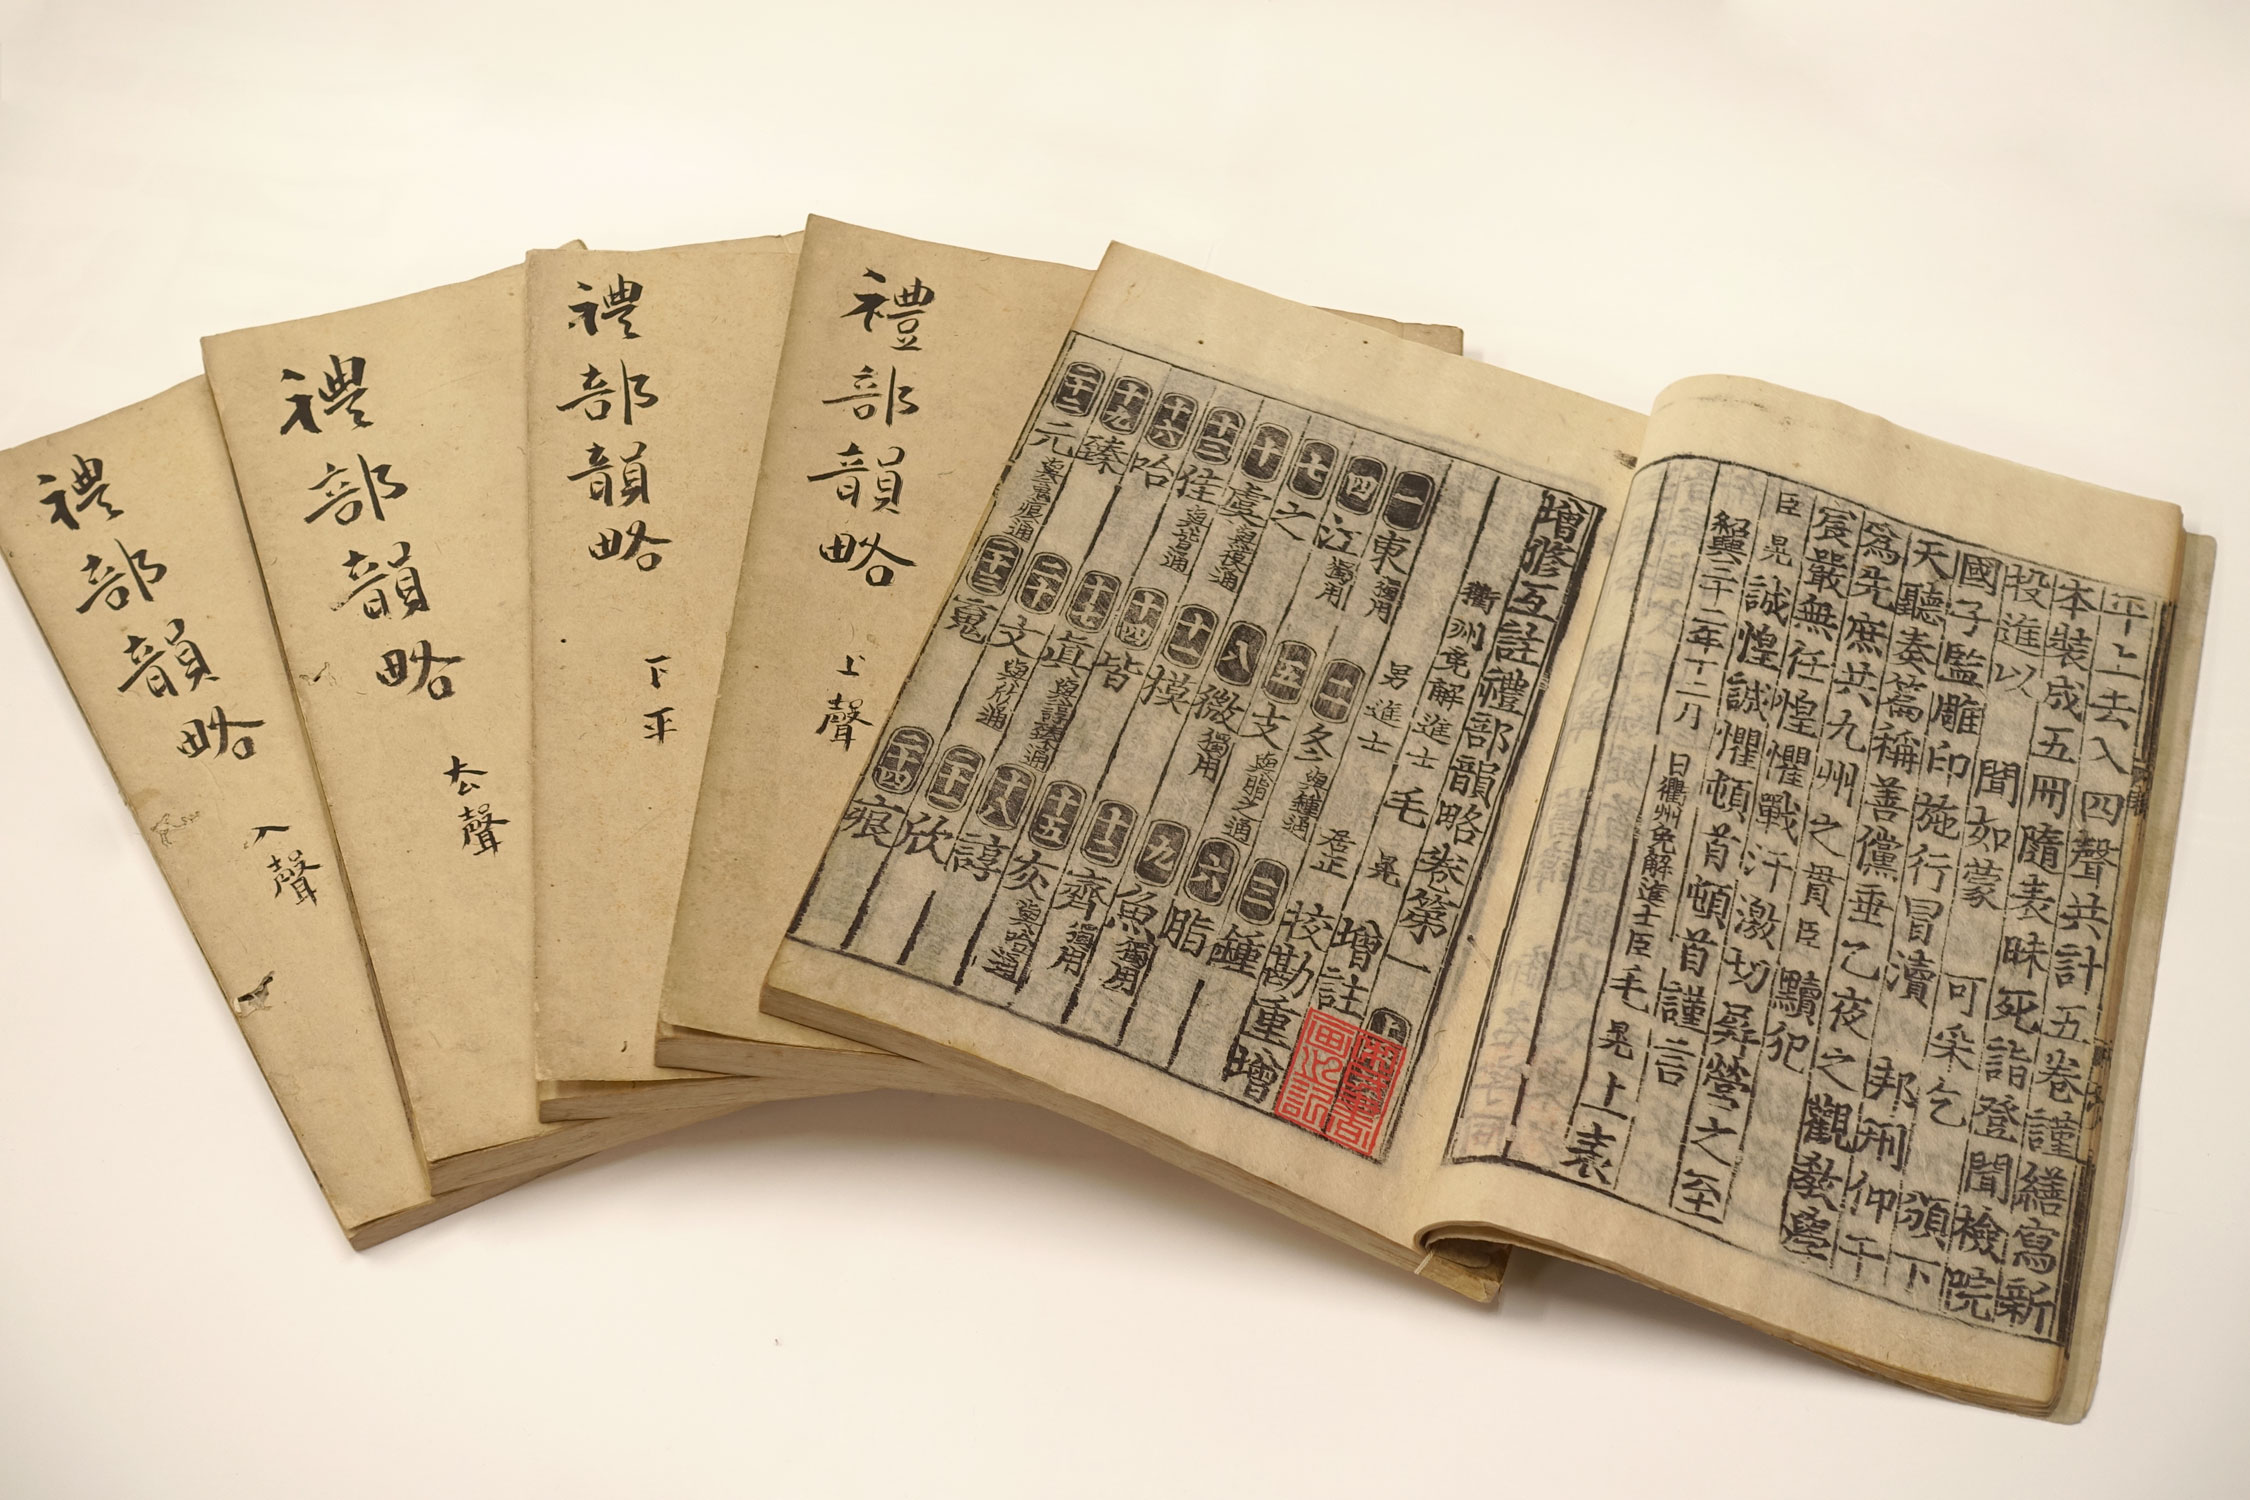 禮部韻略 入聲
禮部韻略 去聲
禮部韻略 下平
禮部韻略 上聲
平上去入四聲共計五卷謹繕寫新
本裝成五冊隨表昧死詣登聞檢院
投進以 聞如蒙 可采乞
國子監雕印施行冒瀆
天聽奏篇稱善儻垂乙夜之觀教學
為先庶共九州之貫臣黷犯
宸嚴無任惶懼戰汗激切屏營之至
臣晃誠惶誠懼頓首頓首謹言
紹興三十二年十二月 日衢州免解進士臣毛晃上表
增修互註禮部韻略卷第一 上
衢州免解進士毛 晃 增註
男進士 居正 校勘重增
一東獨用 二冬與鍾通 三鍾
四江獨用 五支與脂之通 六脂
七之 八微獨用 九魚獨用
十虞與模通 十一模 十二齊獨用
十三佳與皆通 十四皆 十五灰與咍通
十六咍 十七眞與諄臻通 十八諄
十九臻 二十文與欣通 二十一欣
二十二元與䰟痕通 二十三䰟 二十四痕